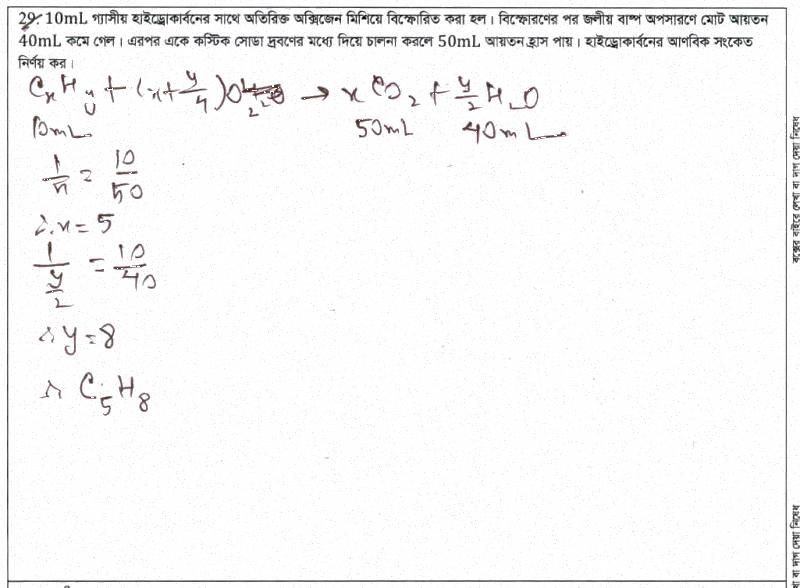 29. 10mL গ্যাসীয় হাইড্রোকার্বনের সাথে অতিরিক্ত অক্সিজেন মিশিয়ে বিস্ফোরিত করা হল। বিস্ফোরণের পর জলীয় বাষ্প অপসারণে মোট আয়তন
40mL কমে গেল। এরপর একে কস্টিক সোডা দ্রবণের মধ্যে দিয়ে চালনা করলে 50mL আয়তন হ্রাস পায়। হাইড্রোকার্বনের আণবিক সংকেত
নির্ণয় কর।
CxHy + (x+y/4)O2 → xCO2 + y/2 H2O
10mL 50mL 40mL
1/x = 10/50
∴ x = 5
1/(y/2) = 10/40
∴ y = 8
∴ C5H8
বক্সের বাইরে লেখা বা দাগ দেয়া নিষেধ
বা দাগ দেয়া নিষেধ